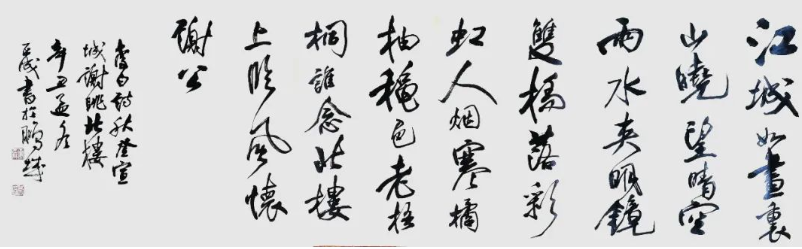 江城如畫裏
山曉望晴空
兩水夾明鏡
雙橋落彩
虹人烟寒橘
柚穐色老梧
桐誰念北樓
上臨風懷
謝公
李白詩秋登宣
城謝朓北樓
辛丑孟冬
書於鵬城